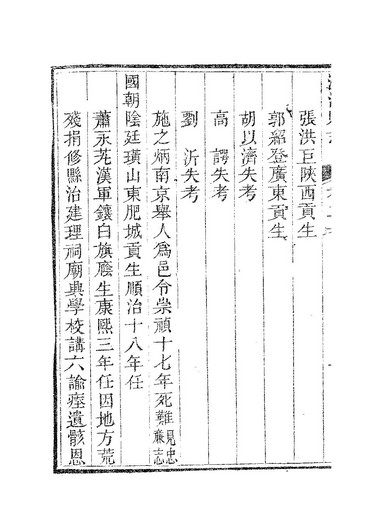 張洪巨陝西貢生
郭紹登廣東貢生
胡以濟失考
高　諤失考
劉　沂失考
施之炳南京舉人爲邑令崇禎十七年死難見忠廉志
國朝陰廷璜山東肥城貢生順治十八年任
蕭永芤漢軍鑲白旗廕生康熙三年任因地方荒
殘捐修縣治建理祠廟興學校講六諭瘞遺骸恩